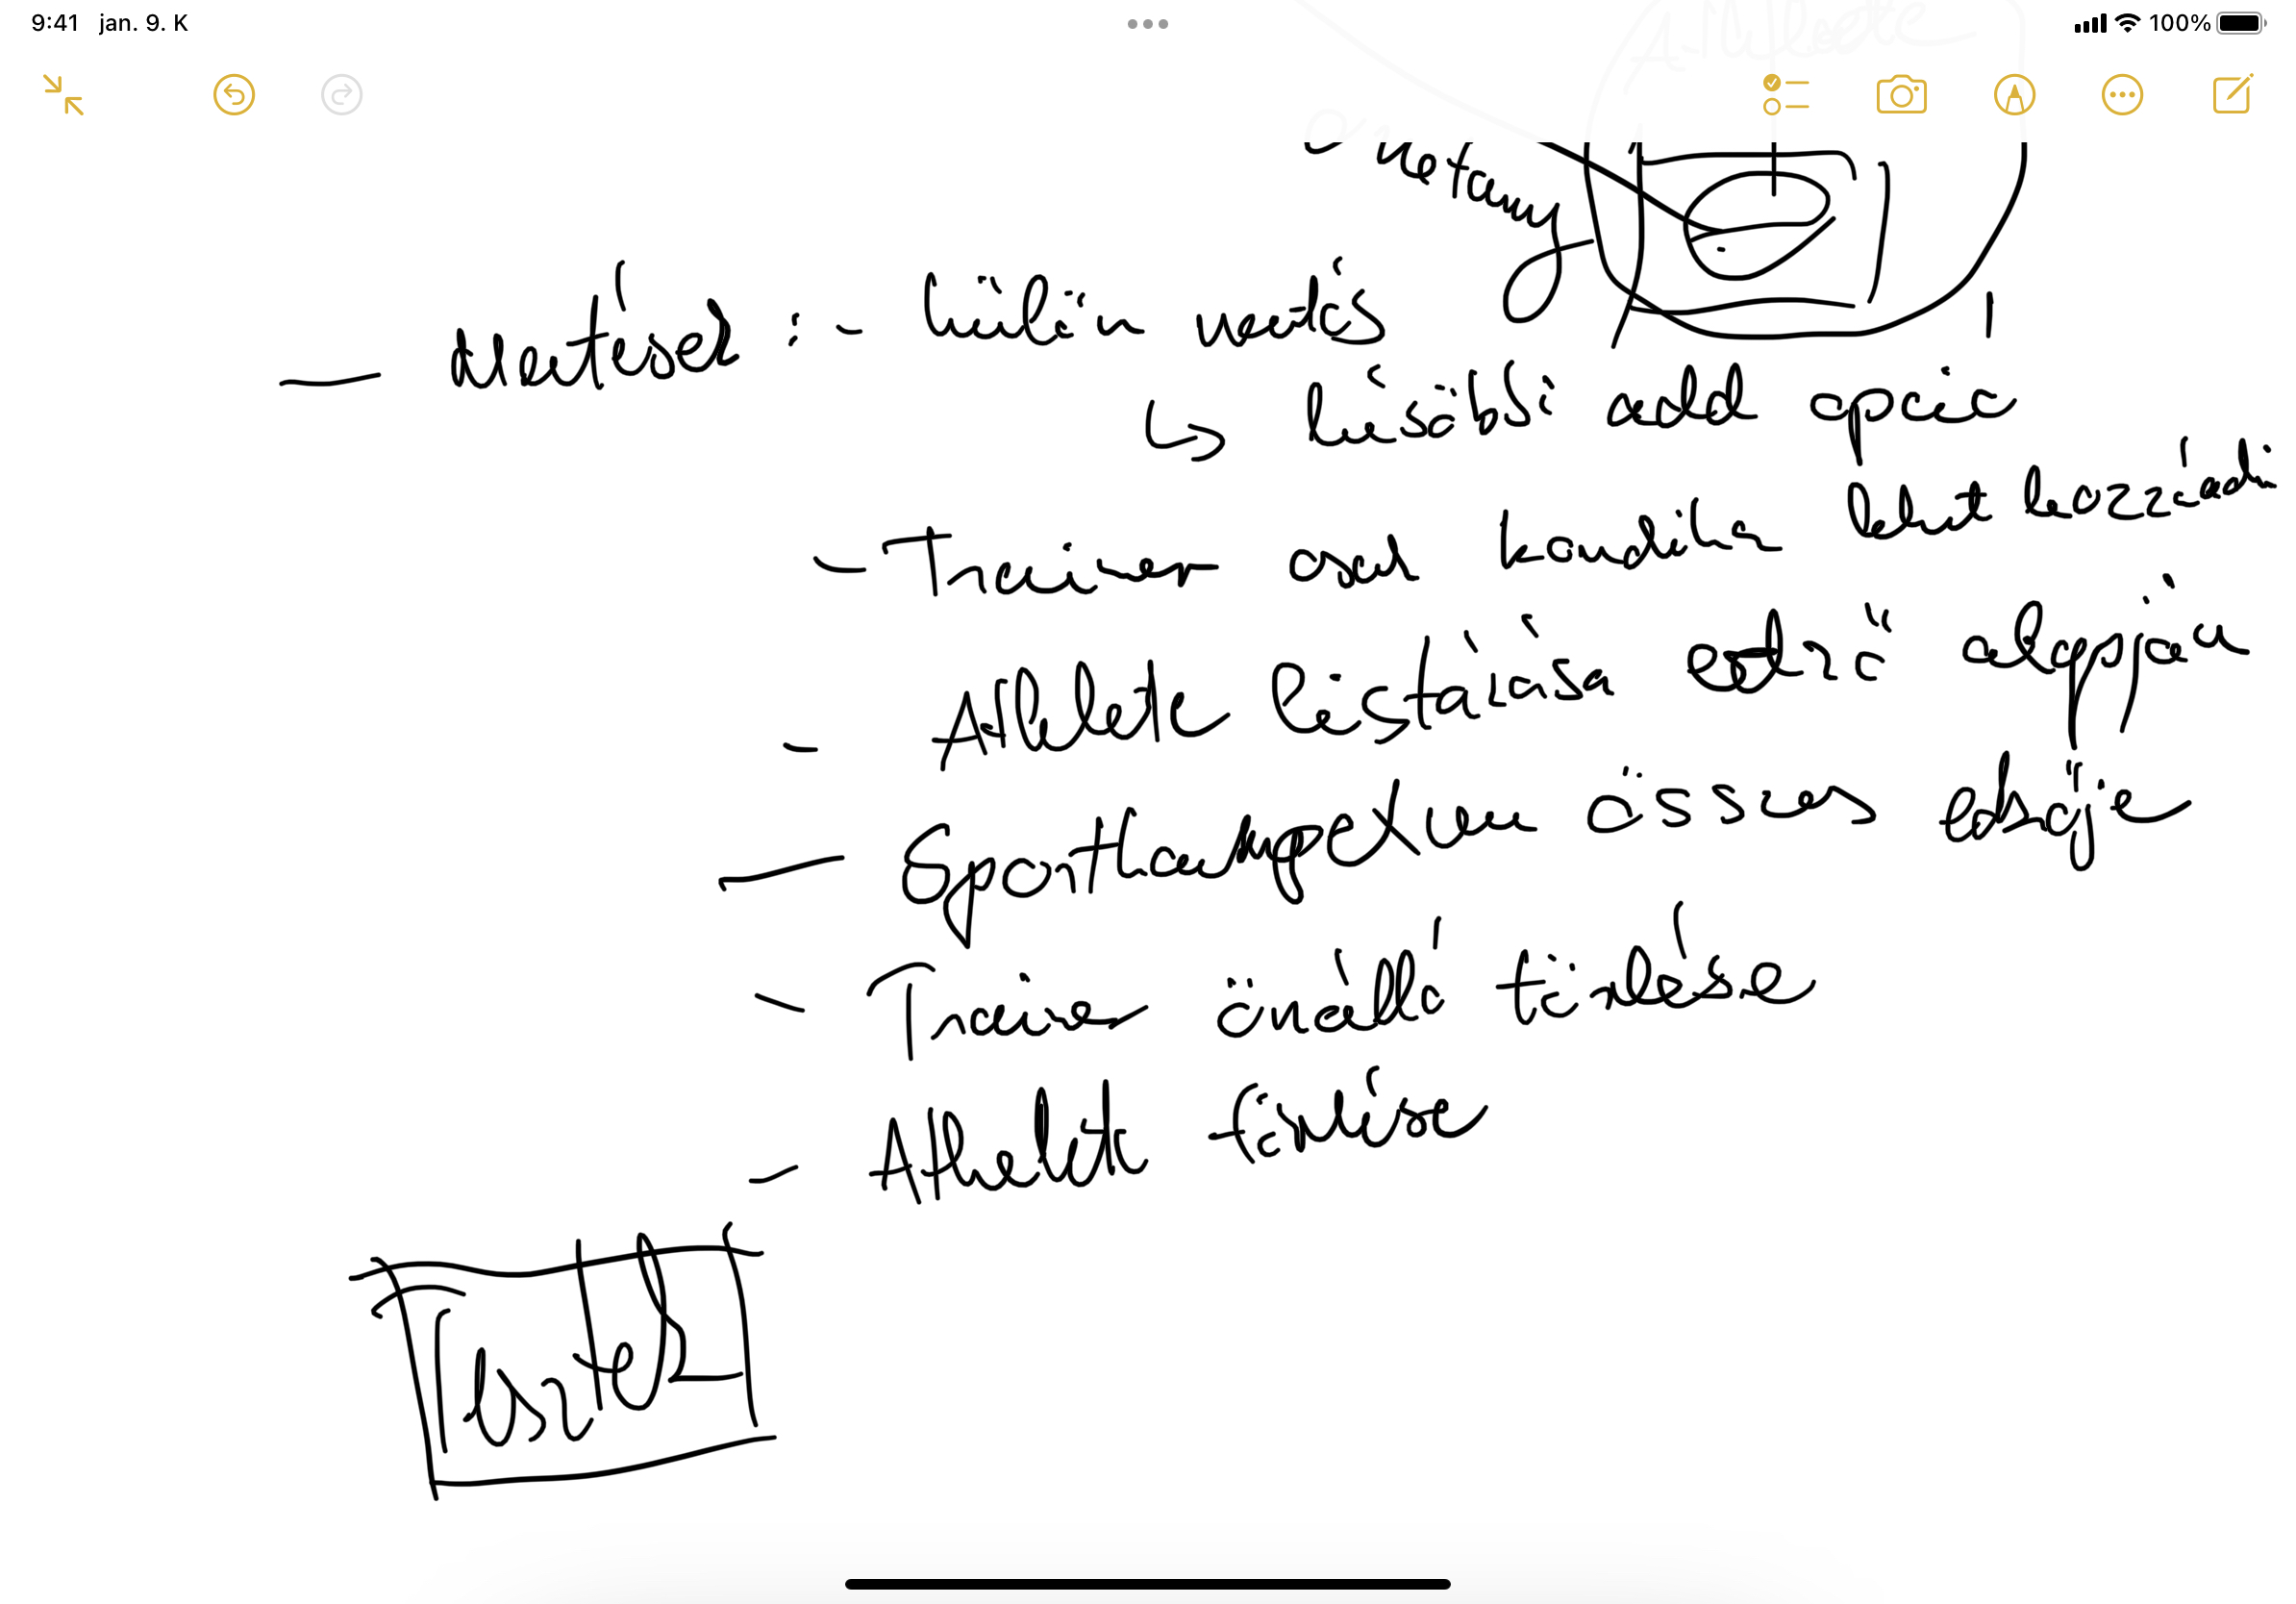 9:41 jan. 9. K
100%
— Mentések : - külön mentés
↳ későbbi add opció
- Trainer csak kondika lehet hozzáadni
- Athlete listázása edző alapján
— Sportkomplexum összes edzője
- Trainer önálló törlése
- Athelete törlése
Tesztek